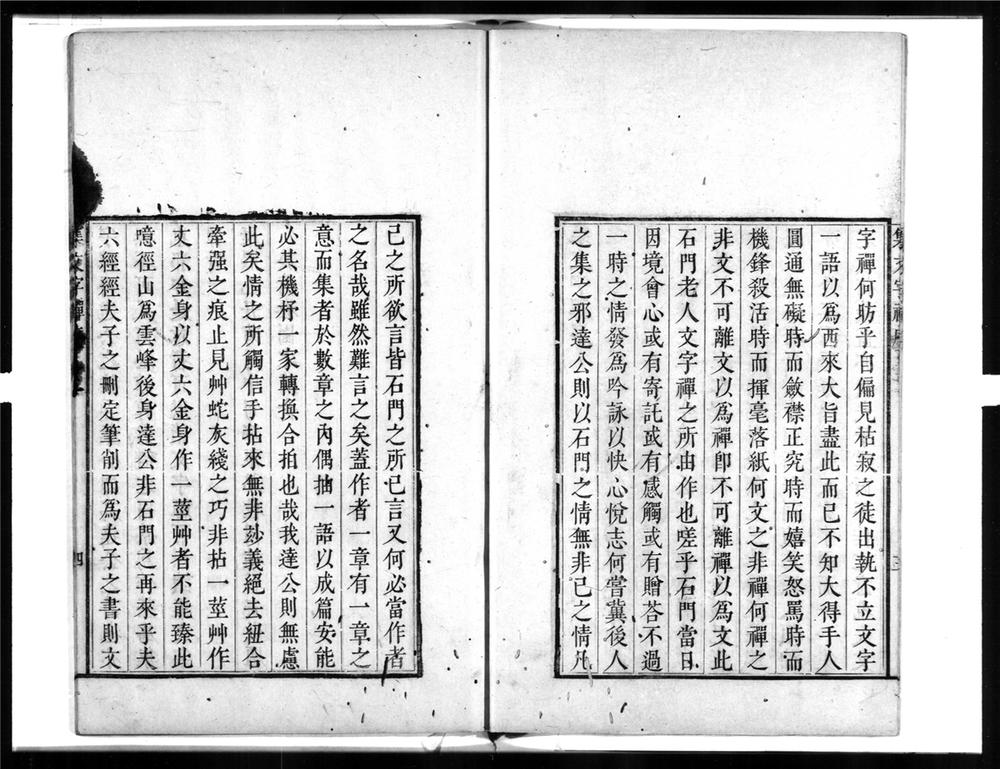 字禪何昉乎自偏見枯寂之徒出執不立文字
一語以爲西來大旨盡此而已不知大得手人
圓通無礙時而斂襟正究時而嬉笑怒罵時而
機鋒殺活時而揮毫落紙何文之非禪何禪之
非文不可離文以爲禪卽不可離禪以爲文此
石門老人文字禪之所由作也嗟乎石門當日
因境會心或有寄託或有感觸或有贈荅不過
一時之情發爲吟詠以快心悅志何嘗冀後人
之集之邪達公則以石門之情無非己之情凡
己之所欲言皆石門之所已言又何必當作者
之名哉雖然難言之矣蓋作者一章有一章之
意而集者於數章之內偶抽一語以成篇安能
必其機杼一家轉換合拍也哉我達公則無慮
此矣情之所觸信手拈來無非玅義絕去紐合
牽强之痕止見艸蛇灰綫之巧非拈一莖艸作
丈六金身以丈六金身作一莖艸者不能臻此
噫徑山爲雲峰後身達公非石門之再來乎夫
六經經夫子之刪定筆削而爲夫子之書則文
集文字禪
四